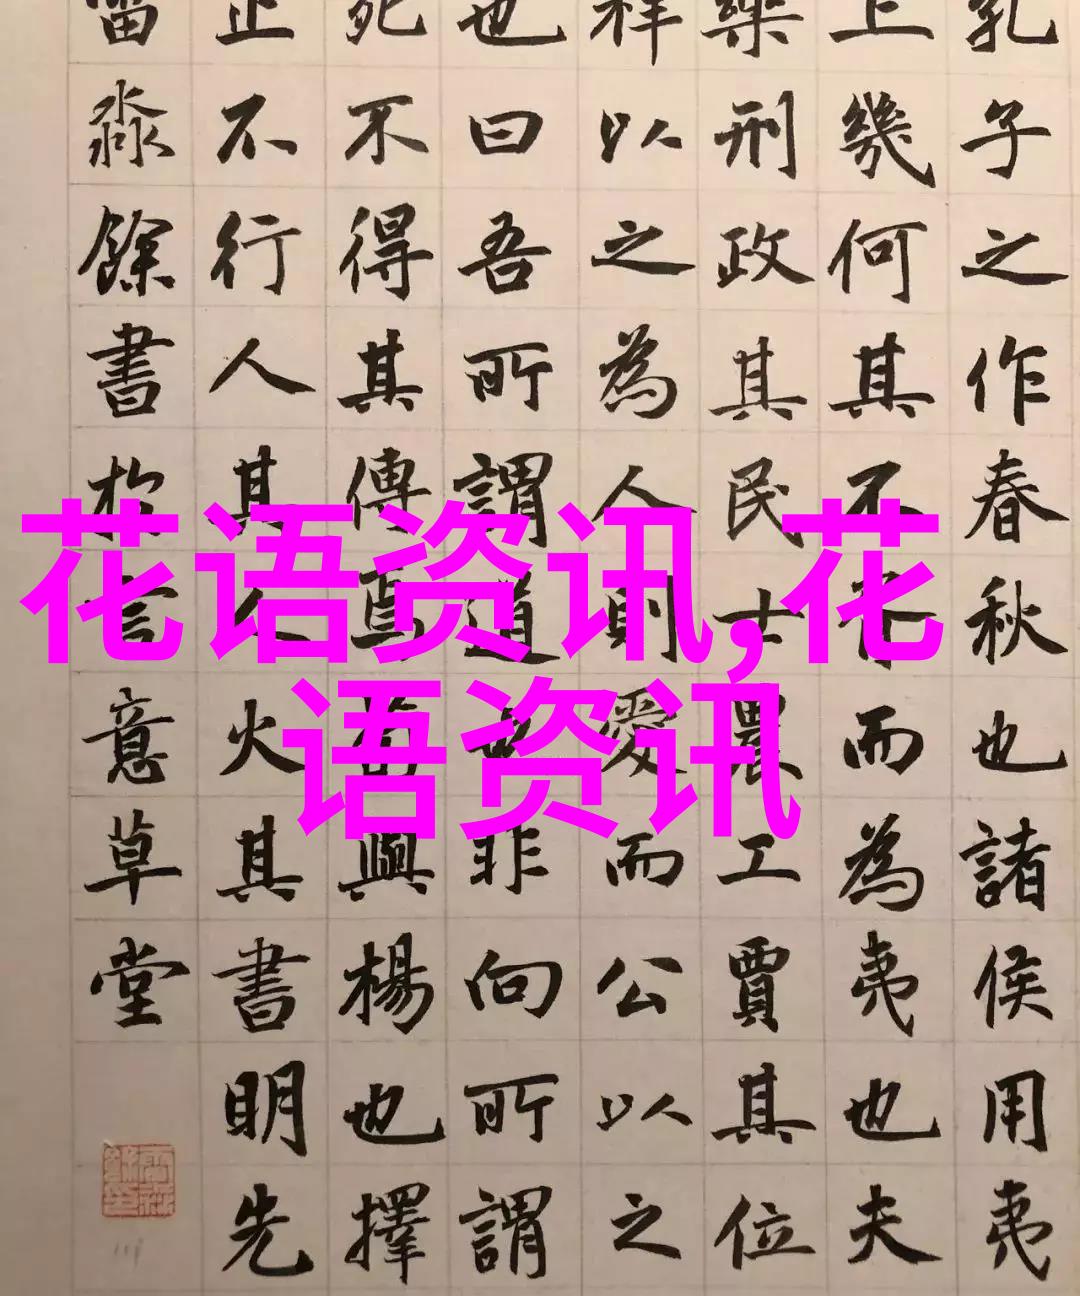 孔子之作春秋也諸侯用夷
上幾何其不而為夷也夫
樂刑政其民士農工賈其位
祥以之為人則愛而公以之
也曰吾所謂道也非向所謂
死不得其傳焉荀與楊也擇
止不行人其人火其書明先
淼餘書於意草堂
花语资讯,花
语资讯